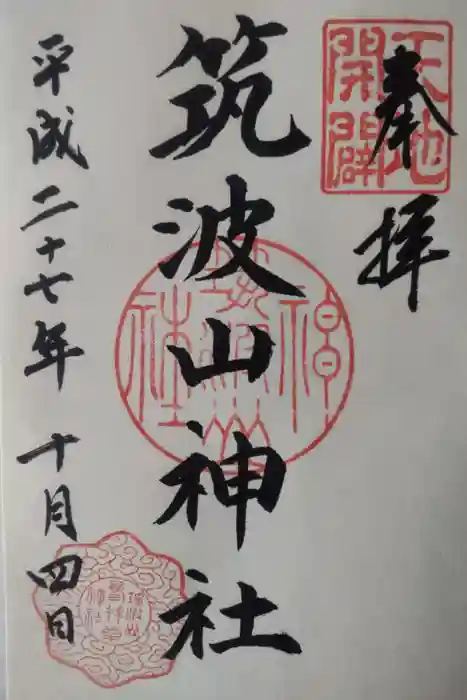 奉拝
天地
開闢
筑波山神社
平成二十七年十月四日